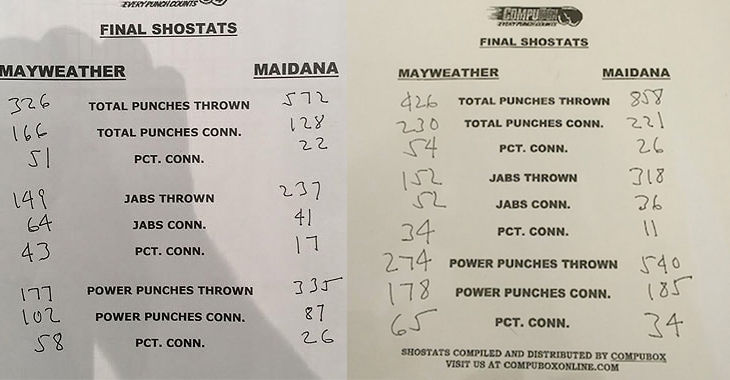 EVERY PUNCH COUNTS
FINAL SHOSTATS
MAYWEATHER MAIDANA
326 TOTAL PUNCHES THROWN 572
166 TOTAL PUNCHES CONN. 128
51 PCT. CONN. 22
149 JABS THROWN 237
64 JABS CONN. 41
43 PCT. CONN. 17
177 POWER PUNCHES THROWN 335
102 POWER PUNCHES CONN. 87
58 PCT. CONN. 26
COMPUBOX
EVERY PUNCH COUNTS
FINAL SHOSTATS
MAYWEATHER MAIDANA
426 TOTAL PUNCHES THROWN 858
230 TOTAL PUNCHES CONN. 221
54 PCT. CONN. 26
152 JABS THROWN 318
52 JABS CONN. 36
34 PCT. CONN. 11
274 POWER PUNCHES THROWN 540
178 POWER PUNCHES CONN. 185
65 PCT. CONN. 34
SHOSTATS COMPILED AND DISTRIBUTED BY COMPUBOX
VISIT US AT COMPUBOXONLINE.COM